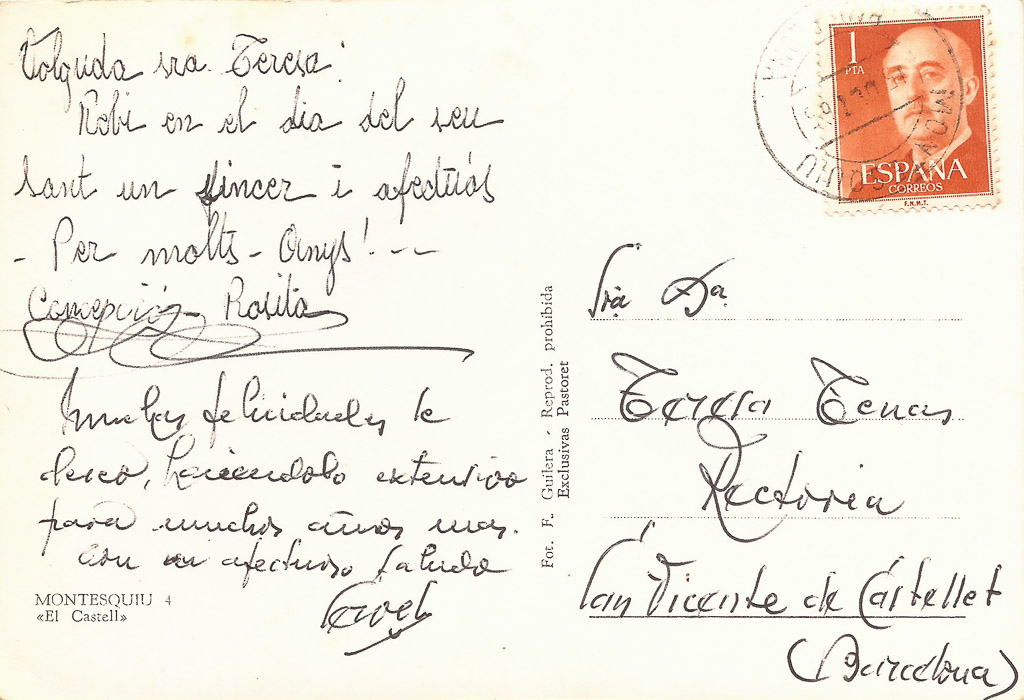 Volguda sra. Teresa:
Rebi en el dia del seu
sant un sincer i afectuós
- Per molts - Anys! - -
Concepción - Rosita
Muchas felicidades le
deseo, haciendolo extensivo
para muchos años mas.
Con un afectuoso saludo
MONTESQUIU 4
«El Castell»
Fot. F. Guilera - Reprod. prohibida
Exclusivas Pastoret
1
PTA
ESPAÑA
CORREOS
F.N.M.T.
Sra Da.
Teresa Tenas
Rectoria
San Vicente de Castellet
(Barcelona)